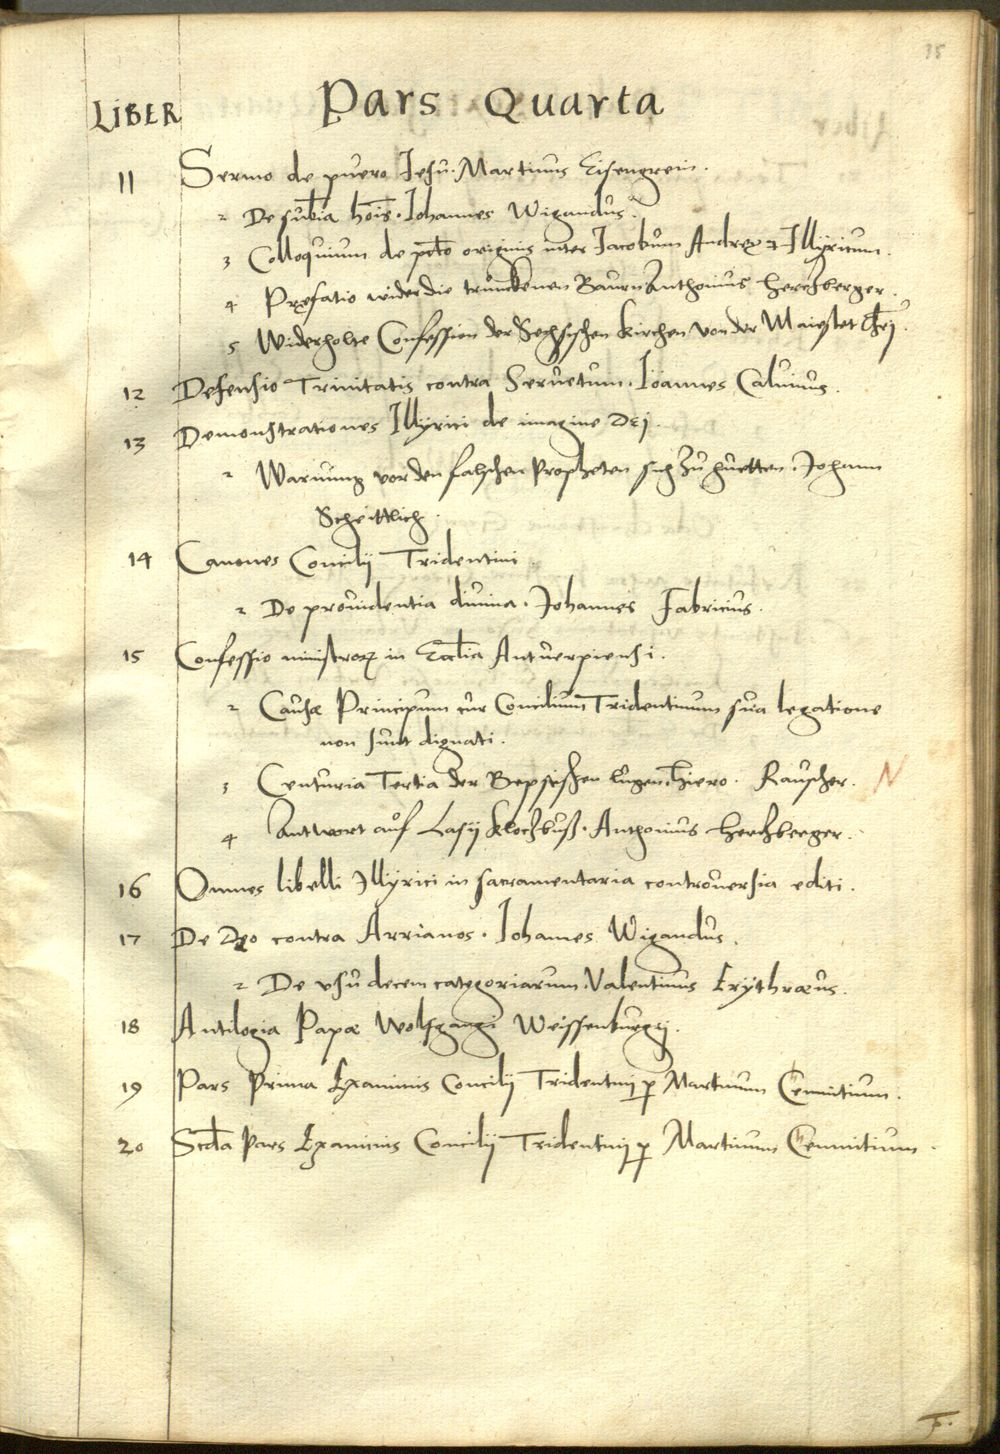 35
LIBER Pars Quarta
11 Sermo de puero Jesu. Martinus Eisengrein.
2 De subia hois. Johannes Wigandus.
3 Colloquium de pcto originis inter Jacobum Andreę et Illyricum.
4 Pręfatio wider die trunckenen Baurn Anthonius Herchberger.
5 Widerholte Confession der Sechsischen Kirchen von der Maiestet Chri.
12 Defensio Trinitatis contra Servetum. Ioannes Calvinus.
13 Demonstrationes Illyrici de imagine Dei.
2 Warnung vor den falschen Propheten sich zu huetten. Johann
Scheittlich.
14 Canones Concilij Tridentini
2 De providentia divina. Johannes Fabricius.
15 Confessio ministrorum in Ecclia Antverpiensi.
2 Causæ Principum cur Concilium Tridentinum sua legatione
non sunt dignati.
3 Centuria Tertia der Bepstischen lugen. Hiero. Rauscher. N
4 Antwort auf Lasij Klochbuß. Anthonius Herchberger.
16 Omnes libelli Illyrici in sacramentaria controversia editi.
17 De Deo contra Arrianos. Iohannes Wigandus.
2 De usu decem categoriarum. Valentinus Erythræus.
18 Antilogia Papæ Wolfgangi Weissenburgij.
19 Pars Prima Examinis Concilij Tridentinij p Martinum Cemnitium.
20 Scda Pars Examinis Concilij Tridentinij p Martinum Cemnitium.